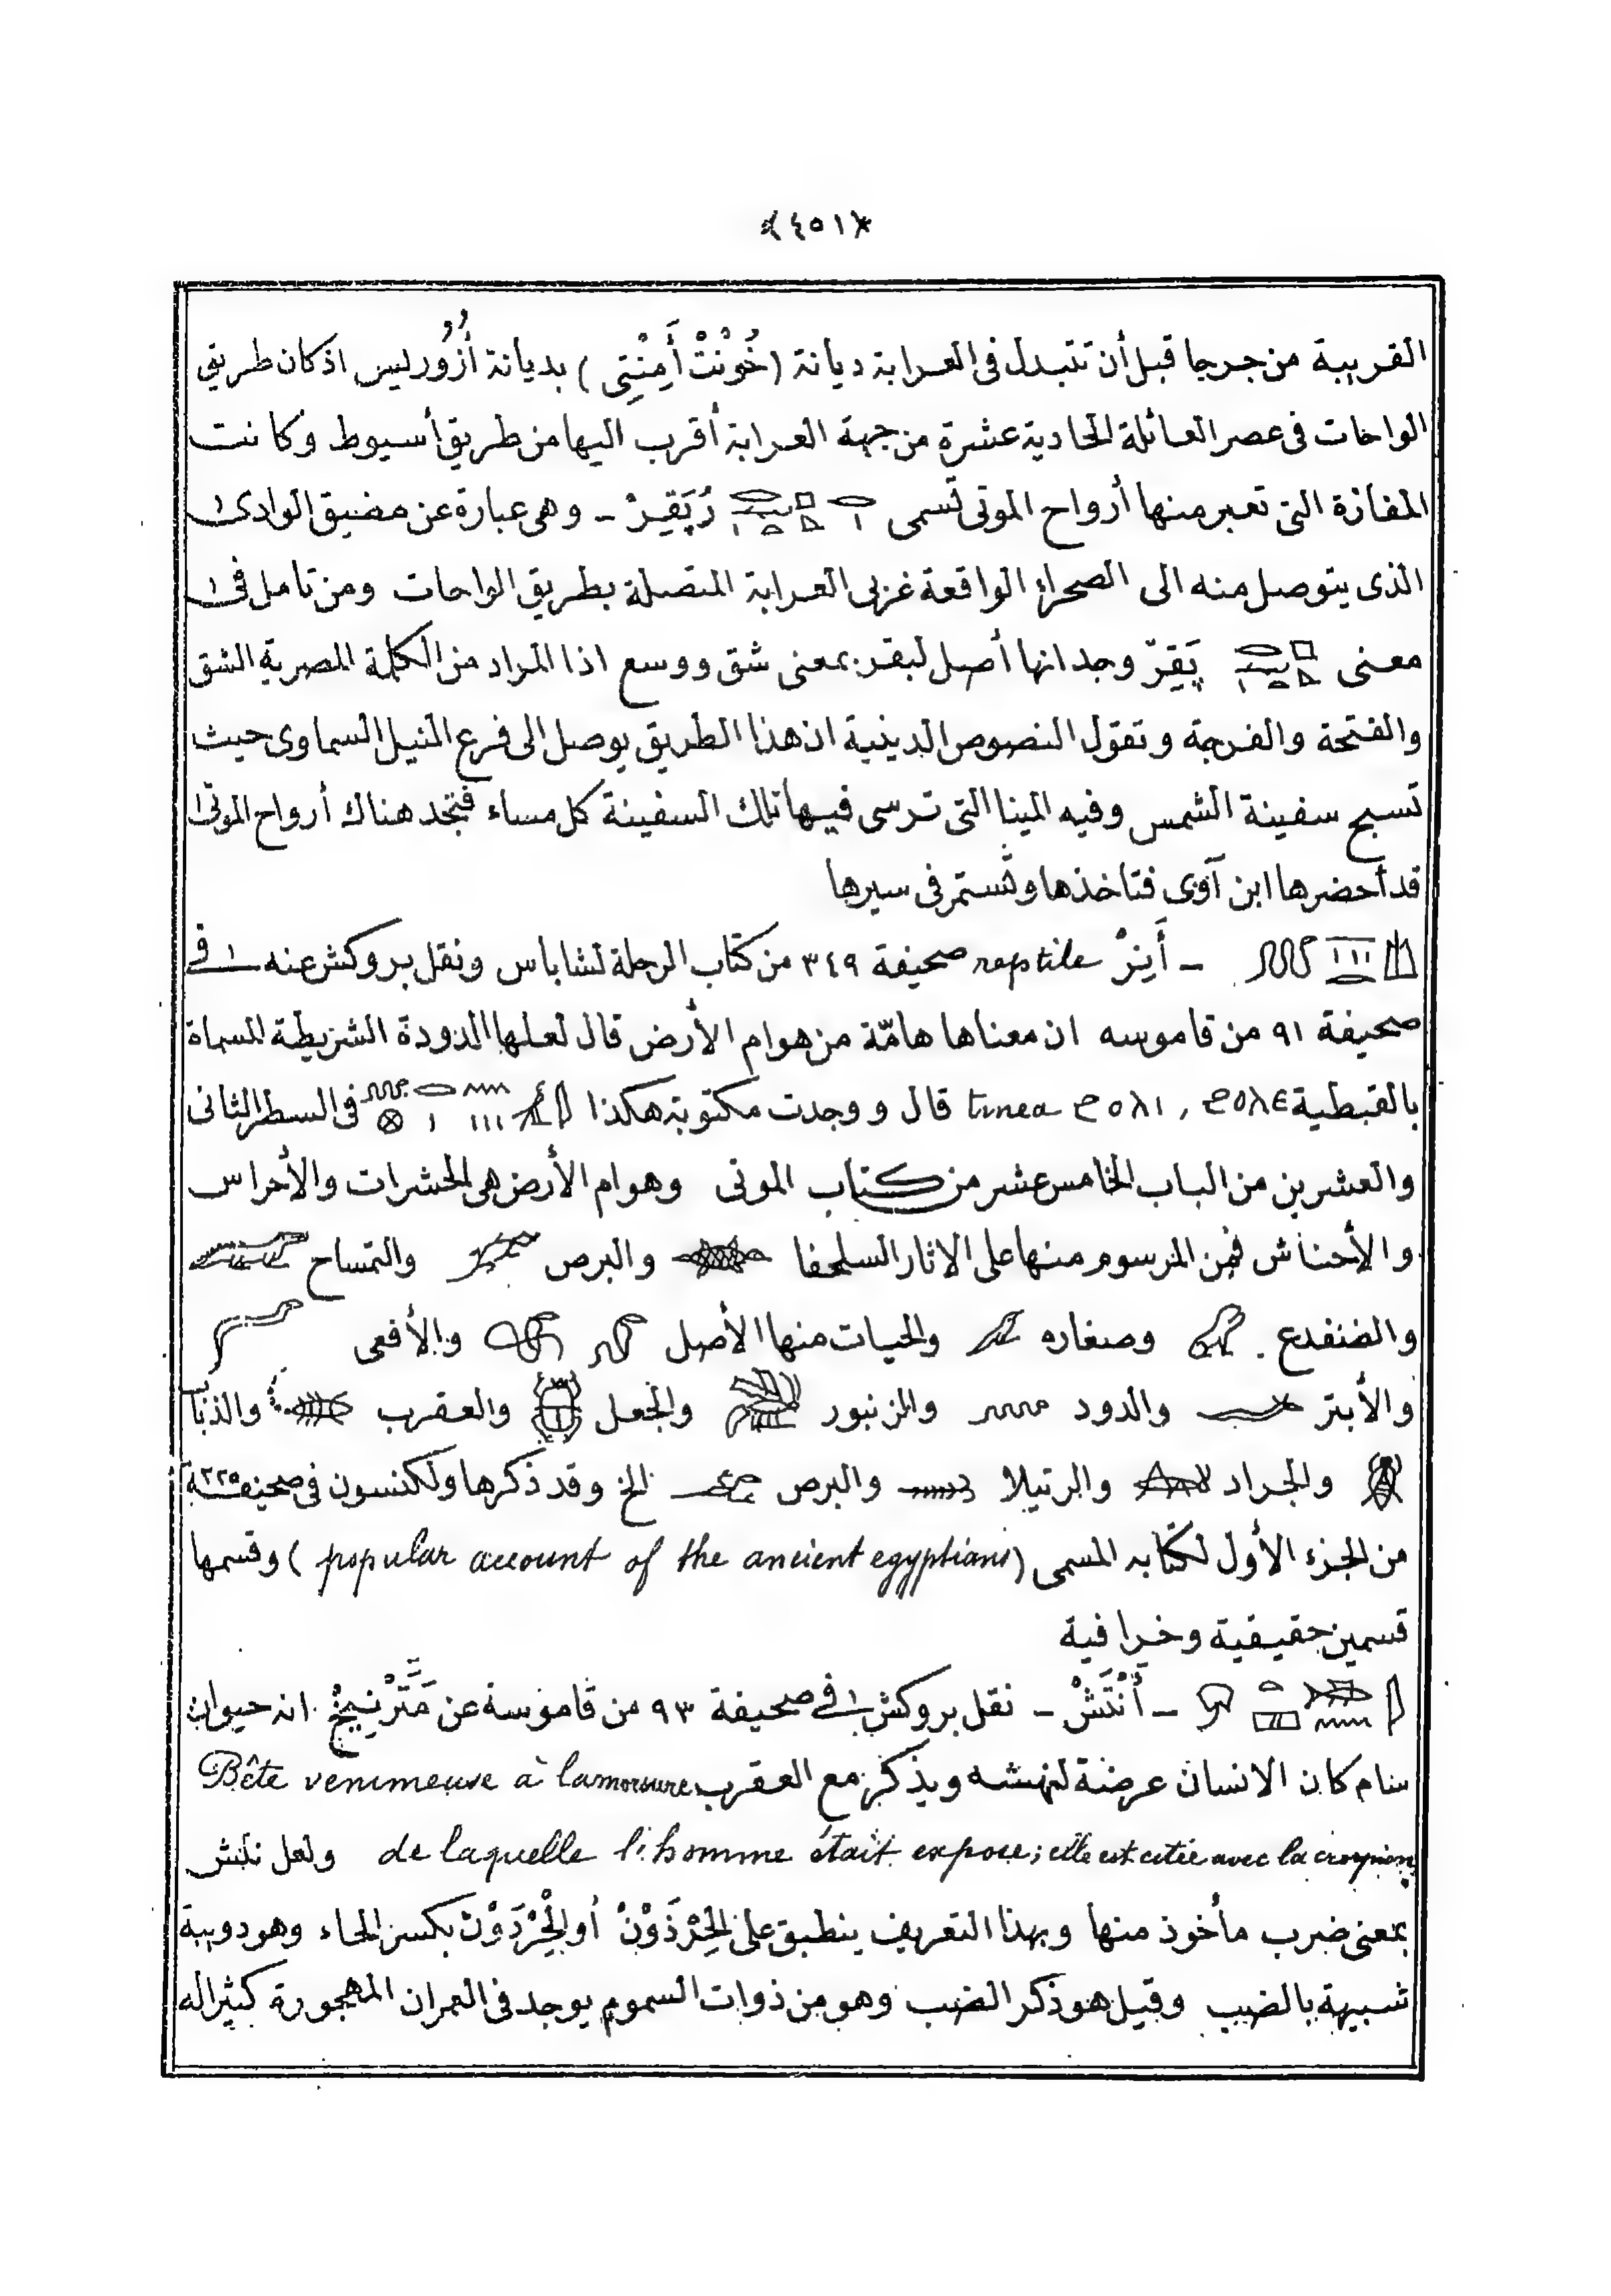 ﴿٤٥١﴾
القريبة من جرجا قبل أن تتبدل فى العرابة ديانة (خُونْتْ أَمِنْتِى) بديانة أُزُورليس اذ كان طريق
الواحات فى عصر العائلة الحادية عشرة من جهة العرابة أقرب اليها من طريق أسيوط وكانت
المفازة التى تعبر منها أرواح الموتى تسمى رُپَقِرْ ـ وهى عبارة عن مضيق الوادى
الذى يتوصل منه الى الصحراء الواقعة غربى العرابة المتصلة بطريق الواحات ومن تامل فى
معنى پَقِرّ وجد انها أصل لبقر بمعنى شق ووسع اذا المراد من الكلمة المصرية الشق
والفتحة والفرجة وتقول النصوص الدينية ان هذا الطريق يوصل الى فرع النيل السماوى حيث
تسبح سفينة الشمس وفيه المينا التى ترسى فيها تلك السفينة كل مساء فتجد هناك أرواح الموتى
قد أحضرها ابن آوى فتاخذها وتستمر فى سيرها
ـ أَنِرْ reptile صحيفة ٣٤٩ من كتاب الرحلة لشاباس ونقل بروكش عنه فى
صحيفة ٩١ من قاموسه ان معناها هامّة من هوام الأرض قال لعلها الدودة الشريطية المسماة
بالقبطية ϩολε , ϩολι tinea قال ووجدت مكتوبة هكذا فى السطر الثانى
والعشرين من الباب الخامس عشر من كتاب الموتى وهوام الأرض هى الحشرات والأحراس
والأحناش فمن المرسوم منها على الاثار السلحفا والبرص والتمساح
والضفدع وصغاره والحيات منها الأصل والأفعى
والأبتر والدود والزنبور والجعل والعقرب والذباب
والجراد والرتيلا والبرص الخ وقد ذكرها ولكنسون فى صحيفة ٢٢٥
من الجزء الأول لكتابه المسمى (popular account of the ancient egyptians) وقسمها
قسمين حقيقية وخرافية
ـ أَنْتَشْ ـ نقل بروكش فى صحيفة ٩٣ من قاموسة عن انه حيوان
سام كان الانسان عرضة لنهشه ويذكر مع العقرب Bête venimeuse à la morsure
de laquelle l'homme était expose; elle est citée avec la و لعل نتش
بمعنى ضرب مأخوذ منها وبهذا التعريف ينطبق على الحِرْذَوْنْ أو الحِرْدَوْن بكسر الحاء وهو دويبة
شبيهة بالضب وقيل هو ذكر الضب وهو من ذوات السموم يوجد فى العمران المهجورة كثيرا له